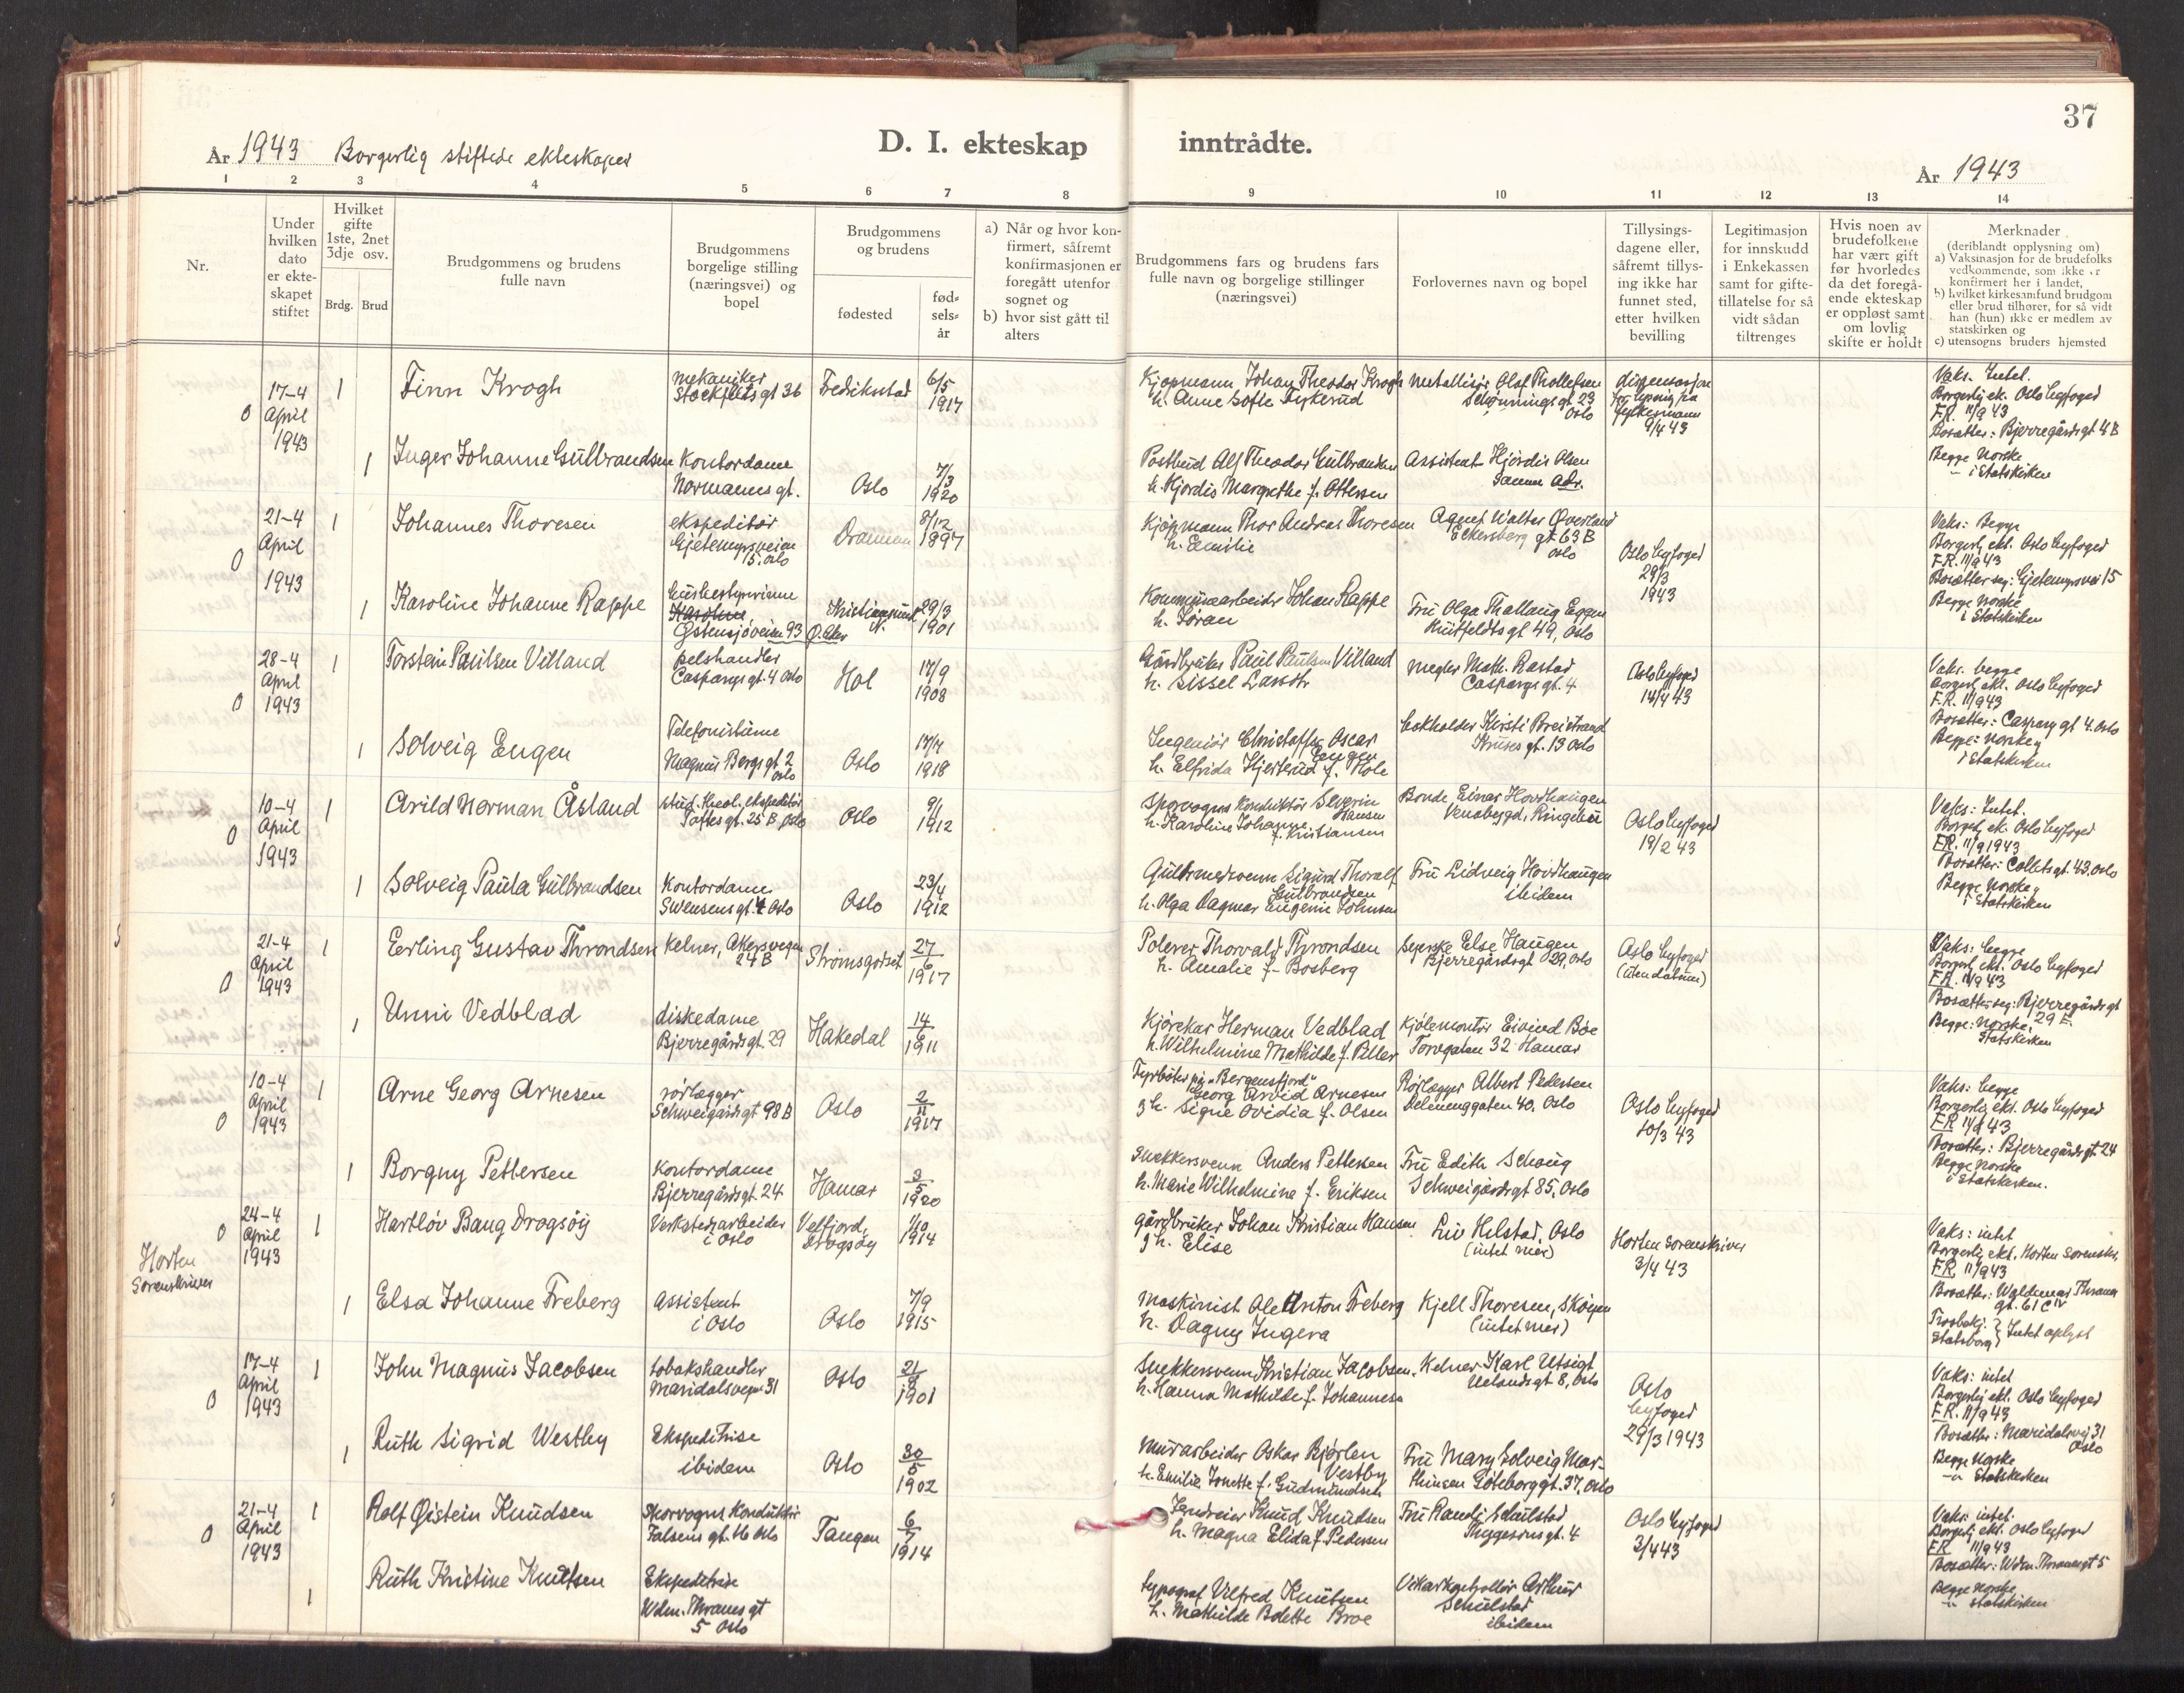 37
D. I. ekteskap inntrådte.
År 1943 Borgerlig stiftede ekteskaper
År 1943
1 2 3 4 5 6 7 8 9 10 11 12 13 14
Nr.
Under
hvilken
dato
er ekte-
skapet
stiftet
Hvilket
gifte
1ste, 2net
3dje osv.
Brdg. Brud
Brudgommens og brudens
fulle navn
Brudgommens
borgelige stilling
(næringsvei) og
bopel
Brudgommens
og brudens
fødested
fød-
sels-
år
a) Når og hvor kon-
firmert, såfremt
konfirmasjonen er
foregått utenfor
sognet og
b) hvor sist gått til
alters
Brudgommens fars og brudens fars
fulle navn og borgelige stillinger
(næringsvei)
Forlovernes navn og bopel
Tillysings-
dagene eller,
såfremt tillys-
ing ikke har
funnet sted,
etter hvilken
bevilling
Legitimasjon
for innskudd
i Enkekassen
samt for gifte-
tillatelse for så
vidt sådan
tiltrenges
Hvis noen av
brudefolkene
har vært gift
før hvorledes
da det foregå-
ende ekteskap
er oppløst samt
om lovlig
skifte er holdt
Merknader
(deriblandt opplysning om)
a) Vaksinasjon for de brudefolks
vedkommende, som ikke er
konfirmert her i landet,
b) hvilket kirkesamfund brudgom
eller brud tilhører, for så vidt
han (hun) ikke er medlem av
statskirken og
c) utensogns bruders hjemsted
0
17-4
April
1943
1
Finn Krogh
mekaniker
Stockfletsgt 36
Fredikstad
6/5
1917
Kjøpmann Johan Theodor Krogh
h. Anne Sofie
Metallisør Olaf Thollefsen
Schønningsgt 23
Oslo
dispensasjon
fylkesmann
9/4 43
Vaks. Intet.
Borgerlig ek. Oslo byfoged
F.R. 11/9 43
Bosætter: Bjerregårdsgt 4B
Begge Norske
- i Statskirken
1
Inger Johanne Gulbrandsen
Kontordame
Normannsgt.
Oslo
7/3
1920
Postbud Alf Theodor Gulbrandsen
h. Hjordis Margrethe f. Ottersen
Assistent Hjördis Olsen
samme Adr.
0
21-4
April
1943
1
Johannes Thoresen
ekspeditør
Gjetemyrsveien
15. Oslo
Drammen
8/12
1897
Kjøpmann Thor Andreas Thoresen
h. Emilie
Agent Walter Øverland
Eckersberg gt 63 B
Oslo
Oslo byfoged
29/3
1943
Vaks: Begge
Borgerlig ekt. Oslo byfoged
F.R. 11/9 43
Bosætter seg: Gjetemyrsvei 15
Begge Norske
i Statskirken
1
Karoline Johanne Rappe
husbestyrerinne
Østensjøveien 93 Ø. Aker
Kristiansund
N.
29/3
1901
Kommunearbeider Johan Rappe
h. Søran
Fru Olga Thallaug Eggen
Huitfeldtsgt 49, Oslo
0
28-4
April
1943
1
Torstein Paulsen Villand
pelshandler
Casparigt. 4 Oslo
Hol
17/9
1908
Gårdbruker Paul Paulsen Villand
h. Sissel Larsdtr
megler Math. Rastad
Casparigt. 4
Oslo byfoged
14/4 43
Vaks. begge
Borgerlig ekt. Oslo byfoged
F.R. 11/9 43
Bosætter: Caspary gt 4. Oslo
Begge: norske
i Statskirken
1
Solveig Engen
Telefonistinne
Magnus Bergsgt 2
Oslo
Oslo
17/7
1918
Ingeniør Christoffer Oscar
Engen
h. Elfrida Hjertrud f. Hole
bokholder Kirsti Breistrand
Kruses gt. 13 Oslo
0
10-4
April
1943
1
Arild Norman Åsland
stud. theol. ekspeditør
Toftesgt. 25 B Oslo
Oslo
9/1
1912
Sporvogns konduktør Severin
Hansen
h. Karoline Johanne
f. Kristiansen
Bonde Einar Hovdhaugen
Venabygd, Ringebu
Oslo byfoged
19/2 43
Vaks: Intet.
Borgerlig ek. Oslo byfoged
F.R. 11/9 1943
Bosætter: Colletsgt. 43. Oslo
Begge Norske
i Statskirken
1
Solveig Paula Gulbrandsen
Kontordame
Svensens gt. 4 Oslo
Oslo
23/4
1912
Gullsmedsvenn Sigurd Thoralf
Gulbrandsen
h. Olga Dagmar Eugenie Johnsen
Fru Lidveig Hovdhaugen
ibidem
0
21-4
April
1943
1
Eerling Gustav Throndsen
Kelner, Akersvegen
24 B
Strömsgodset
27
6
1917
Polerer Thorvald Throndsen
h. Amalie f. Bosberg
Syerske Else Haugen
Bjerregårdsgt 29, Oslo
Oslo byfoged
(uten datum)
Vaks: begge
Borgerlig ekt. Oslo byfoged
F.R. 11/9 43
Bosætter seg: Bjerregårdsgt
29 E.
Begge: Norske.
Statskirken
1
Unni Vedblad
diskedame
Bjerregårdsgt. 29
Hakedal
14
6
1911
Kjörekar Herman Vedblad
h. Wilhelmine Mathilde f. Piller
Kjölemontör Eivind Böe
Torvgaten 32 Hamar
0
10-4
April
1943
1
Arne Georg Arnesen
rörlegger
Schweigårdsgt 98 B
Oslo
2
11
1917
Fyrböter på "Bergensfjord"
Georg Arvid Arnesen
g h. Signe Ovidia f. Olsen
Rörlegger Albert Pedersen
Delenenggaten 40. Oslo
Oslo byfoged
10/3 43
Vaks: begge
Borgerlig ekt. Oslo byfoged
F.R. 11/9 43
Bosætter: Bjerregårdsgt 24
Begge Norske
i Statskirken.
1
Borgny Pettersen
Kontordame
Bjerregårdsgt. 24
Hamar
3
5
1920
Snekkersvenn Anders Pettersen
h. Marie Wilhelmine f. Eriksen
Fru Edith Schaug
Schweigårdsgt 85, Oslo
Horten
Sorenskriver
0
24-4
April
1943
1
Hartlöv Baug Drogsöy
Verkstedsarbeider
i Oslo
Velfjord,
Drogsöy
1/10
1914
gårdbruker Johan Kristian Hansen
g h. Elise
Liv Helstad, Oslo
(intet mer)
Horten Sorenskriver
3/4 43
Vaks: intet
Borgerlig ekt. Horten Sorenskr.
F.R. 11/9 43
Bosætter: Waldemar Thranes
gt. 61 C IV
Trosbekj.
Statsborg. } Intet oplyst
1
Elsa Johanne Freberg
Assistent
i Oslo
Oslo
7/9
1915
Maskinist Ole Anton Freberg
h. Dagny Ingera
Kjell Thoresen, Skøyen
(intet mer)
0
17-4
April
1943
1
John Magnus Jacobsen
tobakshandler
Maridalsvegen 31
Oslo
21
8
1901
Snekkersvenn Kristian Jacobsen.
h. Hanna Mathilde f. Johannesen
Kelner Karl Utsigt
Uelandsgt 8, Oslo
Oslo
byfoged
29/3 1943
Vaks: intet
Borgerlig ekt. Oslo byfoged
F.R. 11/9 43
Bosætter: Maridalsvej 31
Oslo
Begge Norske
-"- Statskirken
1
Ruth Sigrid Westby
Ekspeditrise
ibidem
Oslo
30
5
1902
Murarbeider Oskar Bjerlen
Vestby
h. Emilie Jonette f. Gudmundsen
Fru Mary Solveig Mar-
thinsen Göteborggt. 37, Oslo
0
21-4
April
1943
1
Rolf Øistein Knudsen
Sporvogns Konduktör
Falsens gt. 16 Oslo
Tangen
6
7
1914
Knud Knudsen
h. Magna Elida f. Pedersen
Fru Randi Schulstad
Thygesons gt. 4
Oslo byfoged
3/4 43
Vaks: intet.
Borgerlig ekt. Oslo byfoged
F.R. 11/9 43
Bosætter: Wdm. Thranesgt 5
Begge Norske
-"- statskirken
1
Ruth Kristine Knutsen
Ekspeditrise
Wdm. Thranes gt
5 Oslo
typograf Vilfred Knutsen
h. Mathilde Bolette Broe
Vikarkontrollör Arthur
Schulstad
ibidem